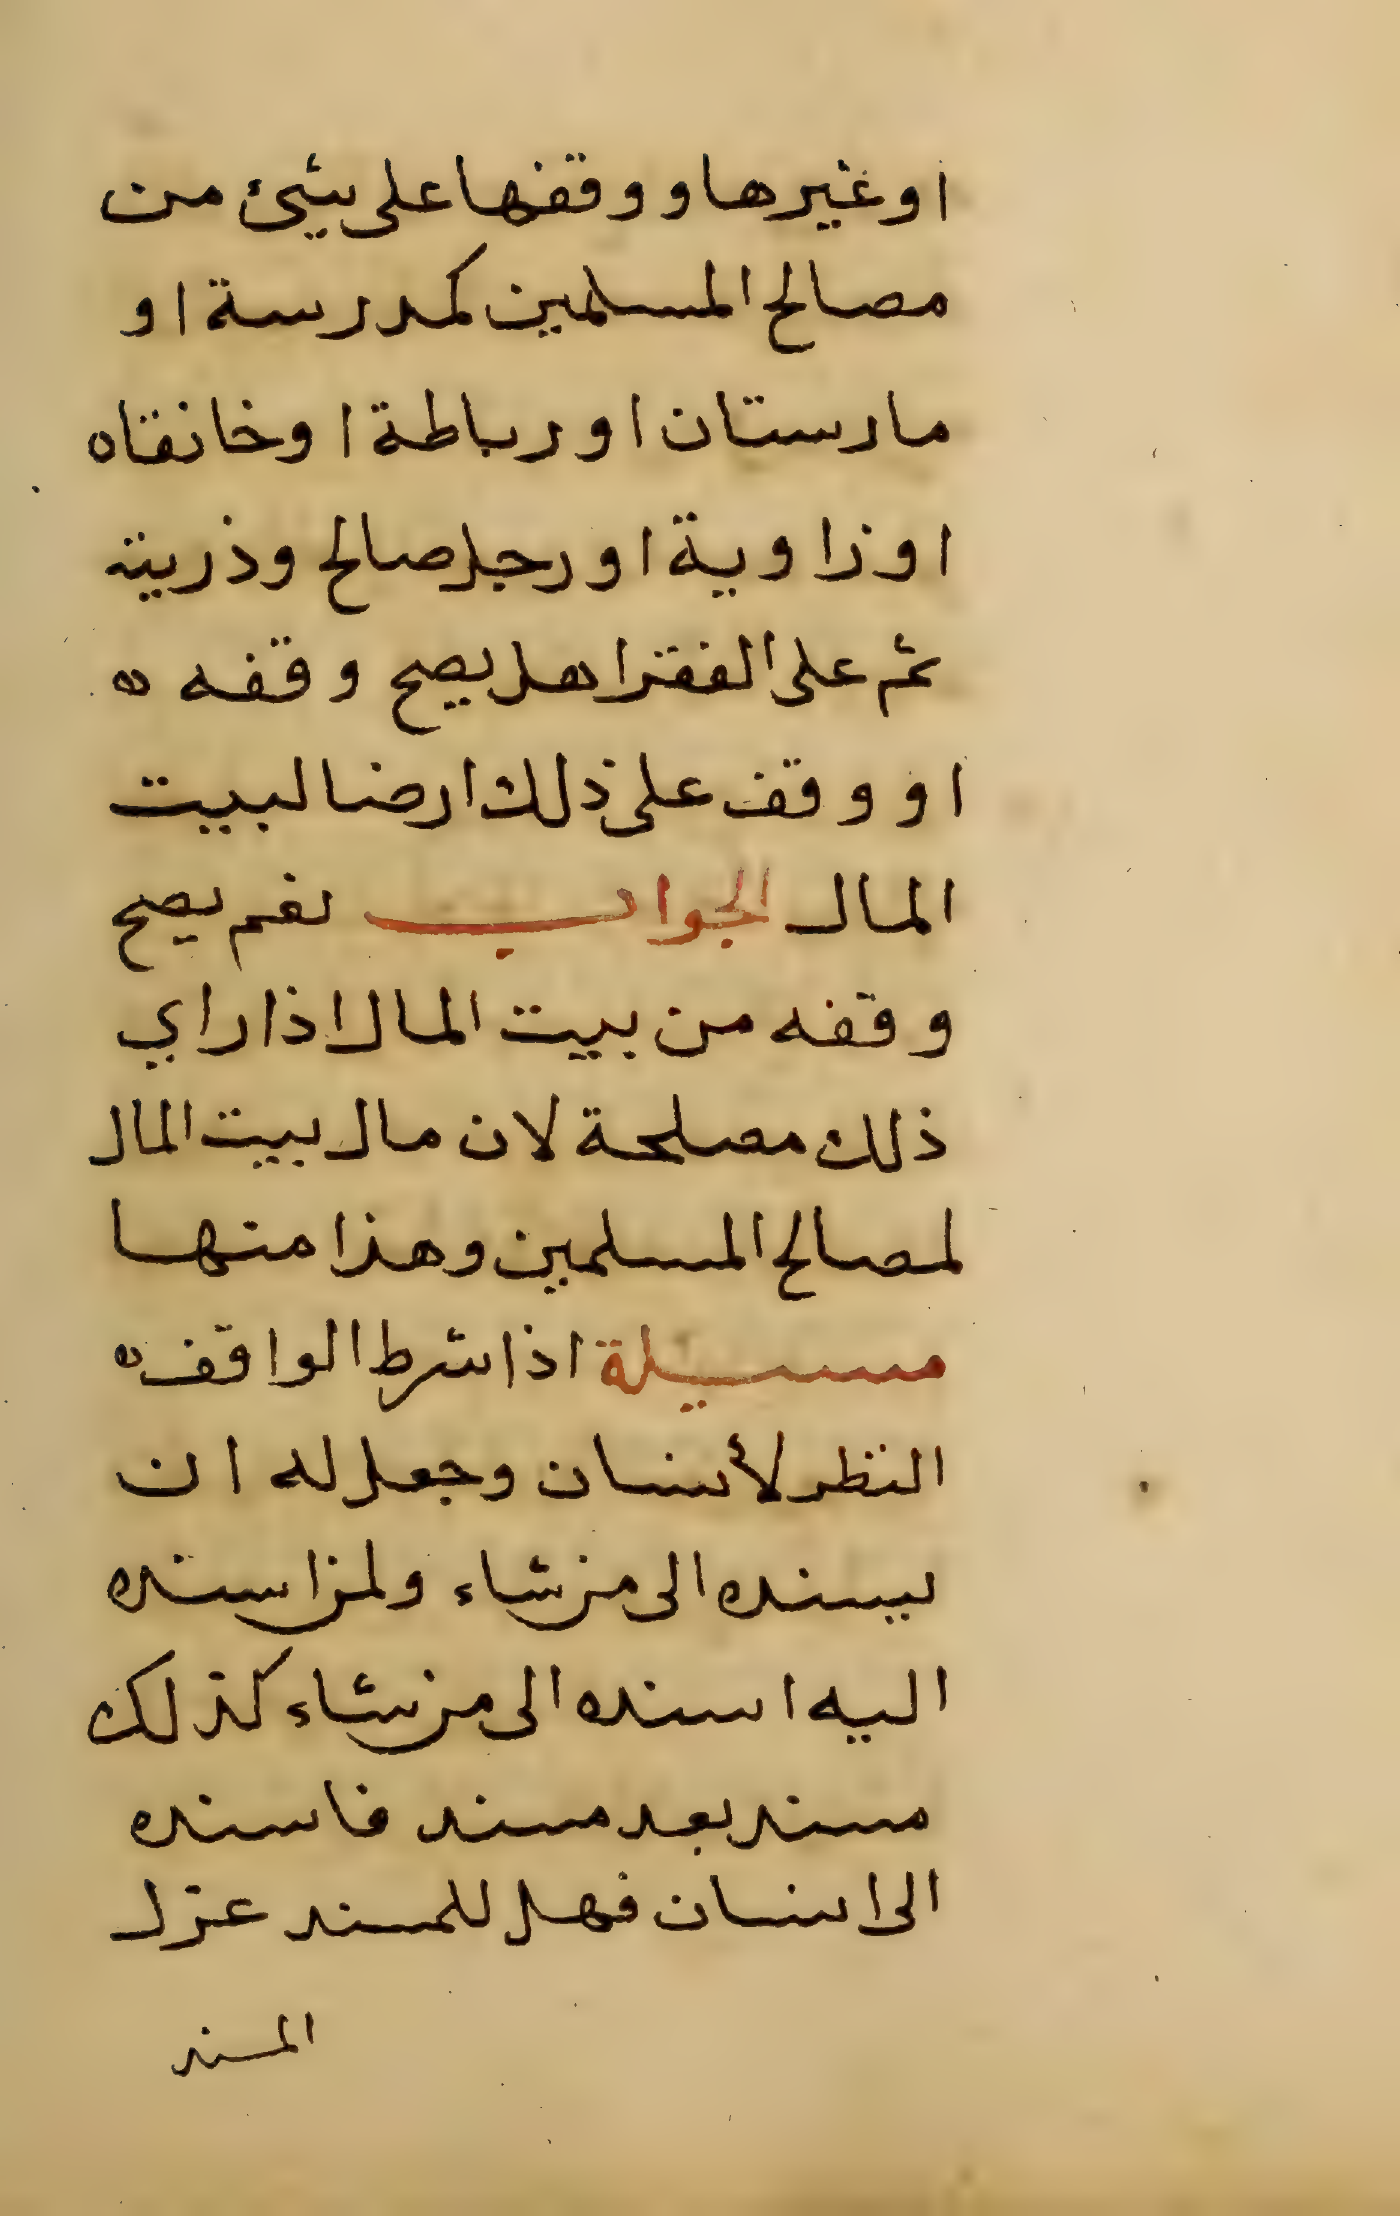 او غيرها ووقفها على شيئ من
مصالح المسلمين كمدرسة او
مارستان او رباطة او خانقاه
او زاوية او رجل صالح وذريته
ثم على الفقرا هل يصح وقفه
او وقف على ذلك ارضا لبيت
المال الجواب نعم يصح
وقفه من بيت المال اذا راي
ذلك مصلحة لان مال بيت المال
لمصالح المسلمين وهذا منها
مسيلة اذا شرط الواقف
النظر لأنسان وجعل له ان
يسنده الى من شاء ولمن اسنده
اليه اسنده الى من شاء كذلك
مسند بعد مسند فاسنده
الى انسان فهل للمسند عزل
المسند